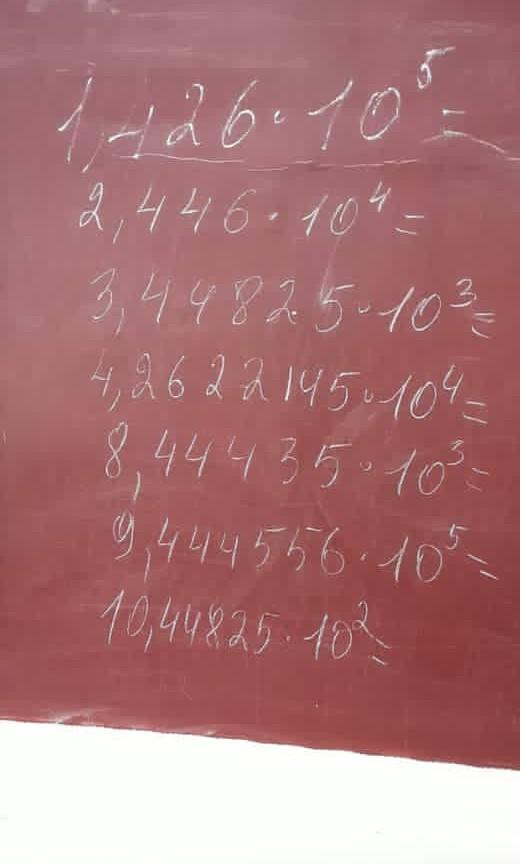 1,426·10⁵=
2,446·10⁴=
3,449825·10³=
4,2622145·10⁴=
8,444435·10³=
9,444556·10⁵=
10,44825·10²=